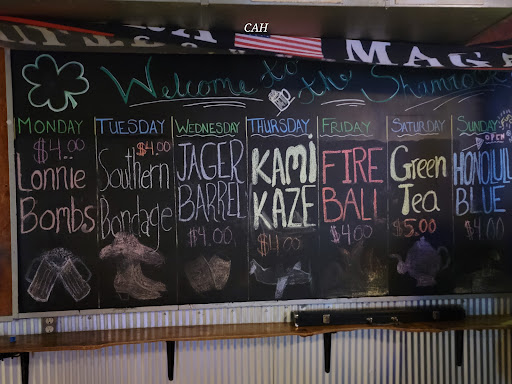 CAH
MAGA
Welcome to the Shamrock
MONDAY
$4.00
Lonnie
Bombs
TUESDAY
$4.00
Southern
Bondage
WEDNESDAY
JAGER
BARREL
$4.00
THURSDAY
KAMi
KAZE
$4.00
FRIDAY
FIRE
BALL
$4.00
SATURDAY
Green
Tea
$5.00
SUNDAY
OPEN
HONOLULU
BLUE
$4.00